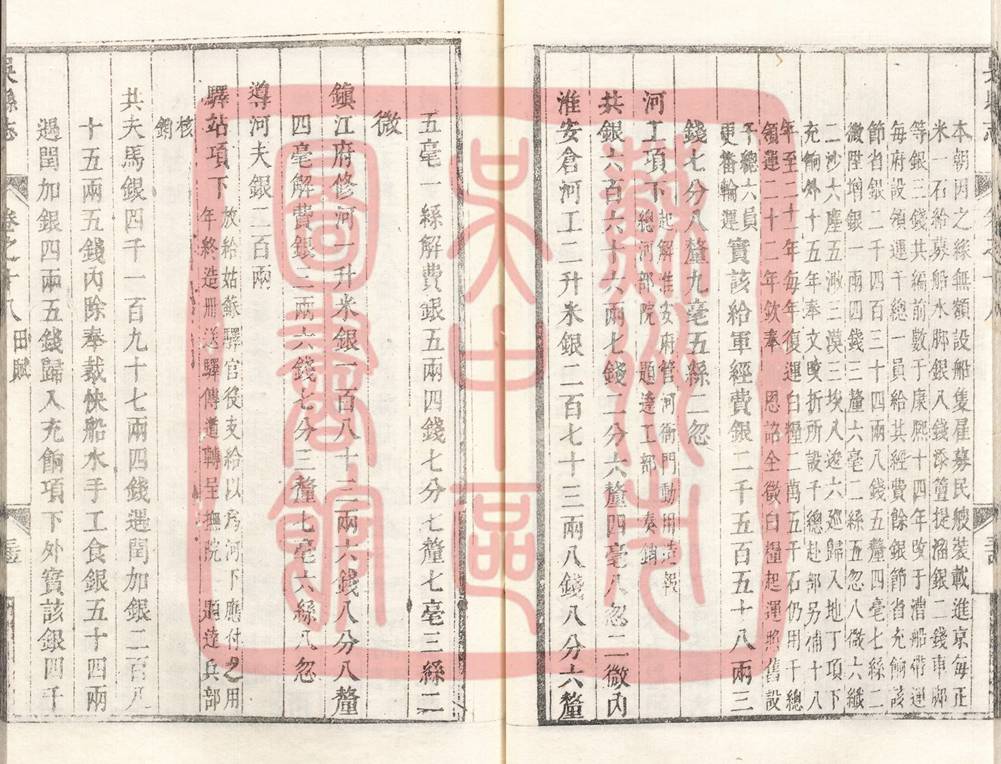 本朝因之緣無額設船隻雇募民艘裝載進京每正
米一石給募船水脚銀八錢
等銀三錢共編前數于康熙十四年改于漕船帶運
每府設領運千總一員給其經費餘銀節省充餉該
節省銀二千四百三十四兩八錢五釐四毫七絲二
微陞增銀一兩四錢三釐六毫二絲五忽八微六纖
二沙六塵五渺三漠三埃八逡六巡歸入地丁項下
充餉外十五年奉文改折所設千總赴部另補十八
年至二十一年每年復運白糧二萬五千石仍用千總
領運二十二年欽奉 恩詔全徵白糧起運照舊設
千總六員
更番輪運
實該給軍經費銀二千五百五十八兩三
錢七分八釐九毫五絲二忽
河工項下
起解淮安府管河衙門動用造報
總河部院 題達工部 奏銷
共銀六百六十六兩七錢二分六釐四毫八忽二微內
淮安倉河工二升米銀二百七十三兩八錢八分六釐
五毫一絲解費銀五兩四錢七分七釐七毫三絲二
微
鎮江府修河一升米銀一百八十三兩六錢八分八釐
四毫解費銀三兩六錢七分三釐七毫六絲八忽
導河夫銀二百兩
驛站項下
放給姑蘇驛官役支給以為河下應付之用
年終造冊送驛傳道轉呈撫院 題達兵部
核
銷
共夫馬銀四千一百九十七兩四錢遇閏加銀二百八
十五兩五錢內除奉裁快船水手工食銀五十四兩
遇閏加銀四兩五錢歸入充餉項下外實該銀四千
吳縣志
卷之十八
田賦
蘇州市
吳中區
圖書館